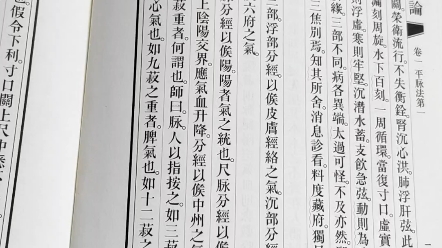 論
卷一 平脉法第一
關榮衛流行不失衡銓腎沉心洪肺浮肝弦此
漏刻周旋水下百刻一周循環當復寸口虛實
則浮虛寒則牢堅沉潛水蓄支飲急弦動則為
緣三部不同病各異端太過可怪不及亦然
三焦别焉知其所舍消息診看料度藏府獨
部浮部分經以候皮膚經絡之氣沉部分經
六府之氣
分經以候陽陽者氣之統也尺脉分經以候
上陰陽交界應氣血升降分經以候中州之
菽重者何謂也師曰脉人以指按之如三菽
心氣也如九菽之重者脾氣也如十二菽之
也假令下利寸口關上尺中悉